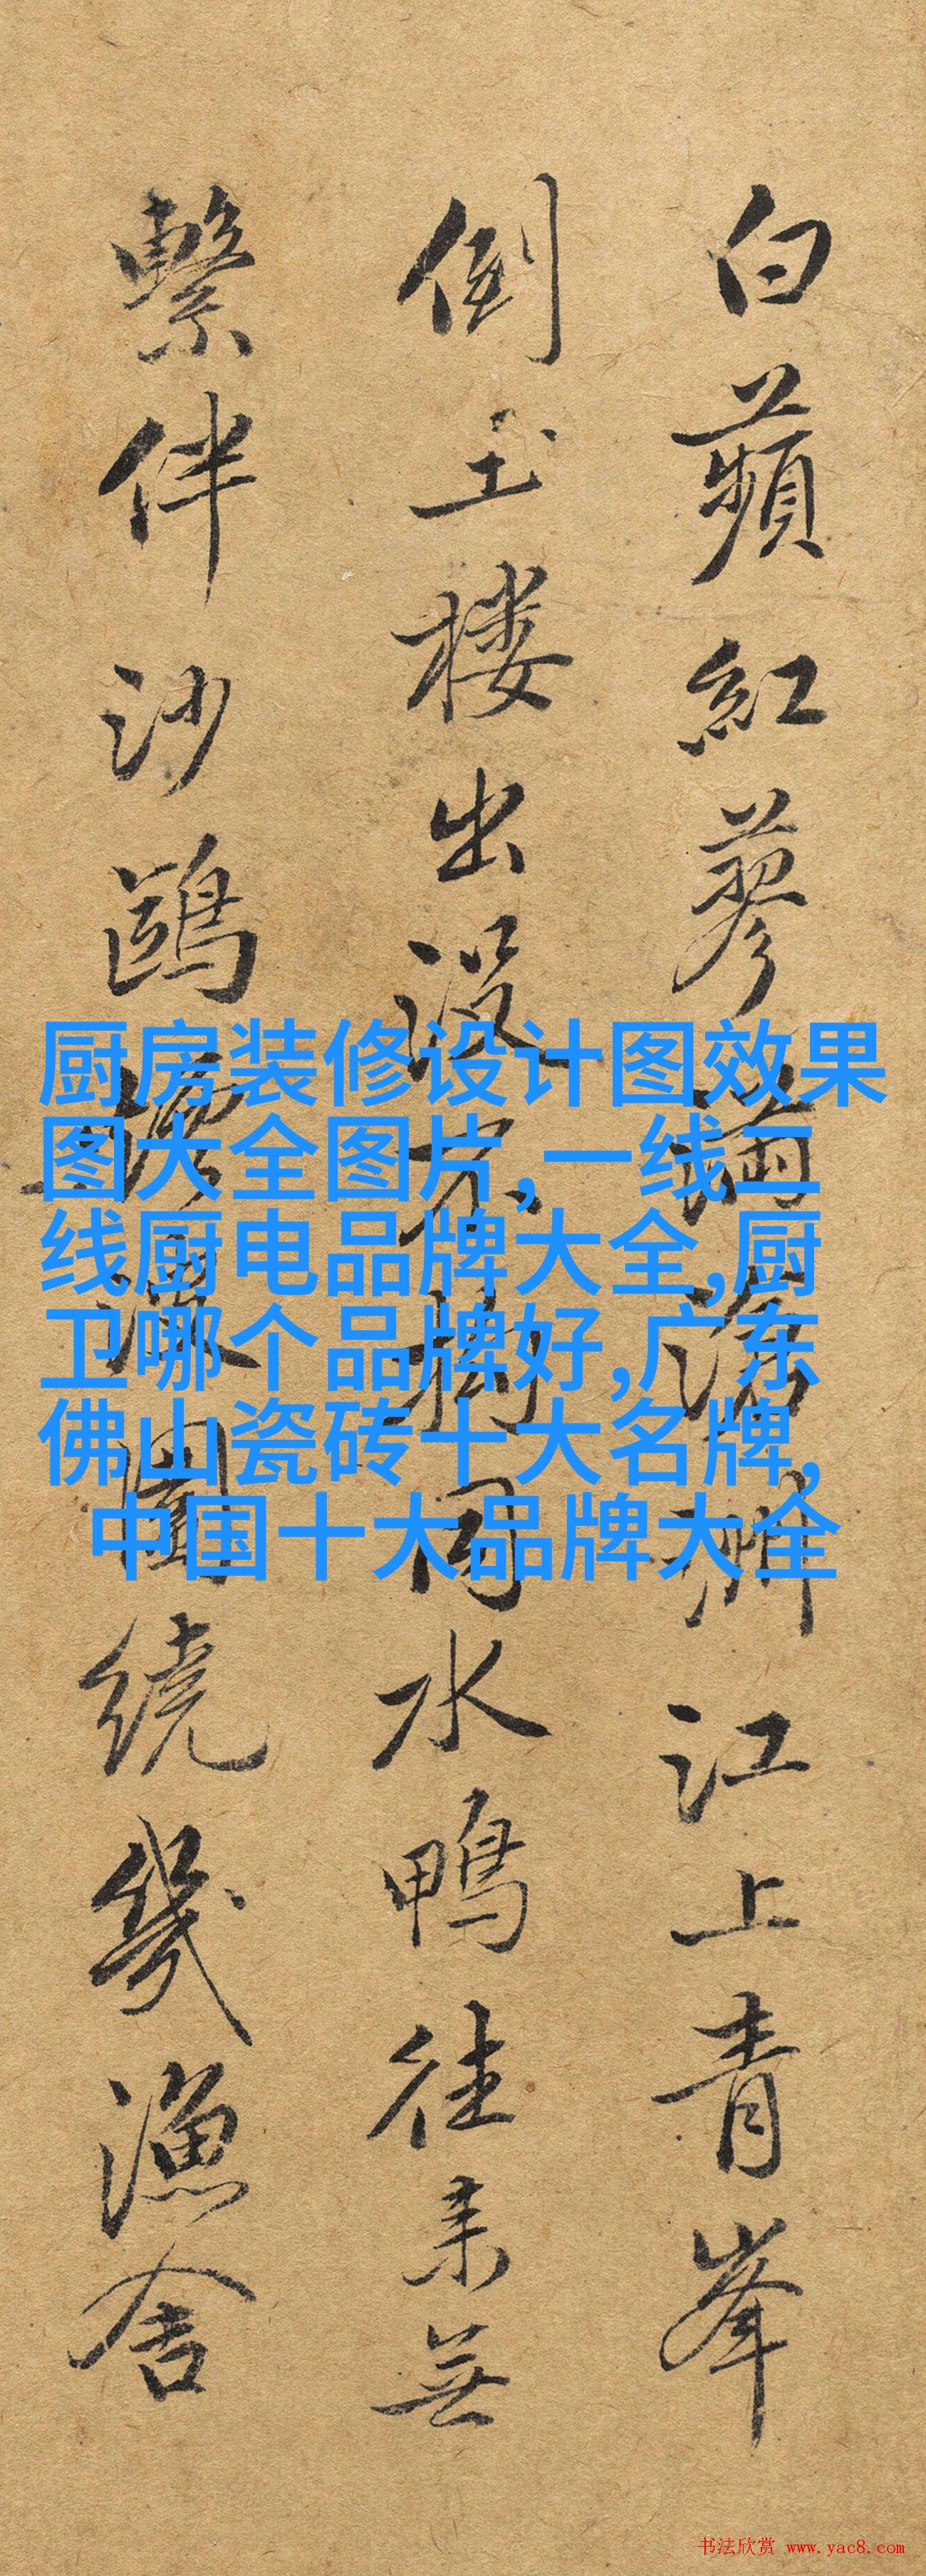 白蘋紅蓼滿滄洲江上青峯
倒玉楼出没不拘同水鴨往来無
繫伴沙鷗圍繞幾漁舍
厨房装修设计图效果
图大全图片,一线二
线厨电品牌大全,厨
卫哪个品牌好,广东
佛山瓷砖十大名牌,
中国十大品牌大全
书法欣赏 www.yac8.com